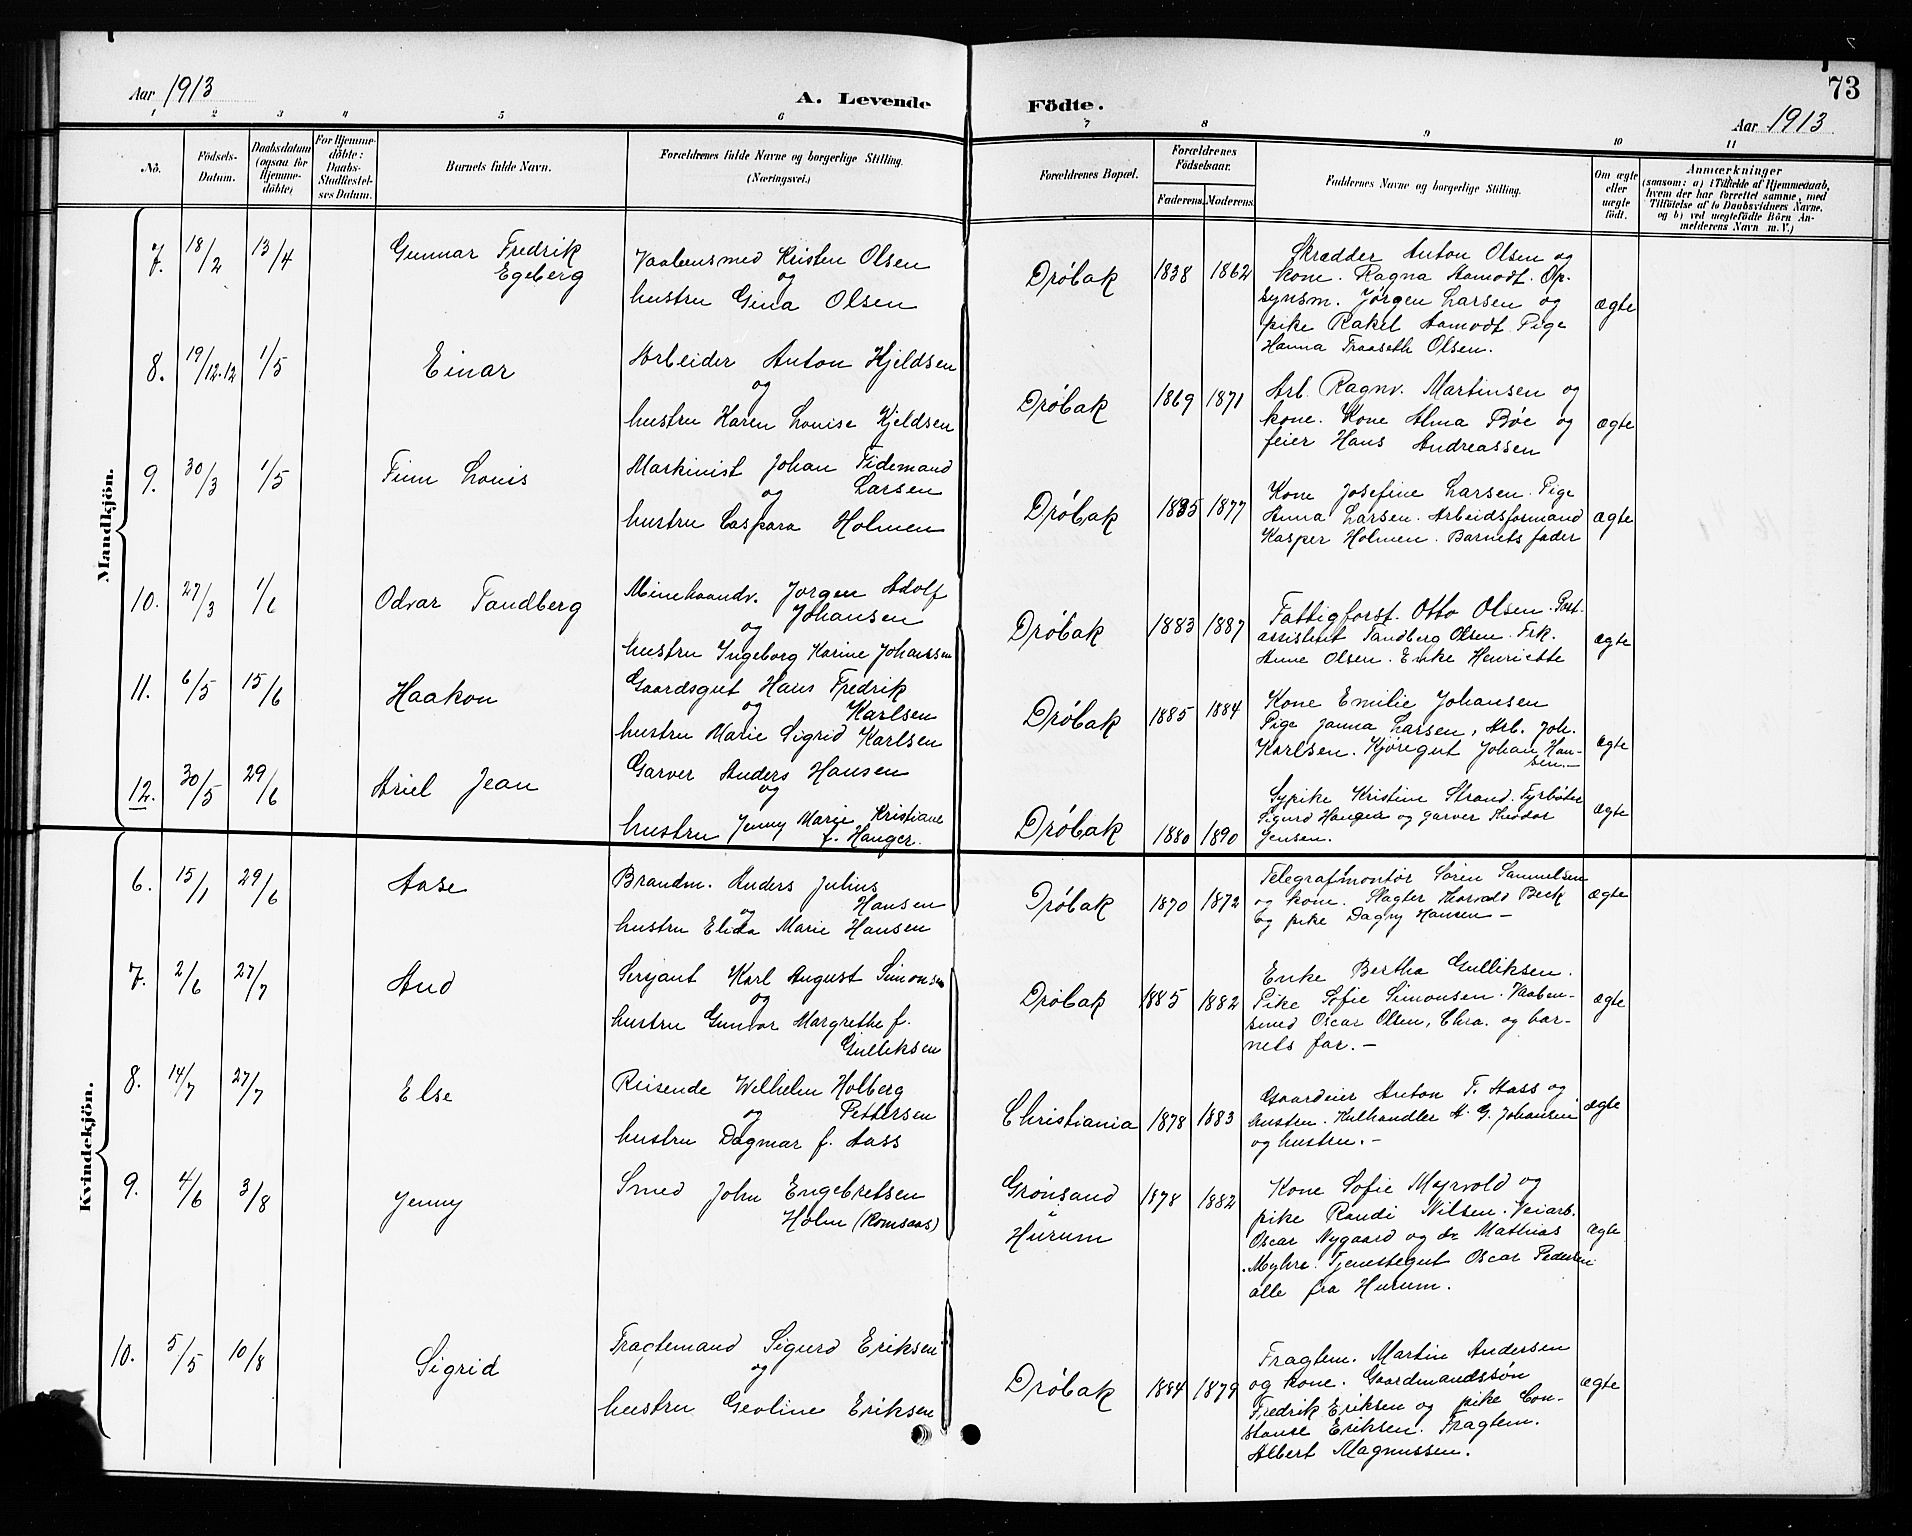 73
Aar 1913
A. Levende Födte.
Aar 1913
1 2 3 4 5 6 7 8 9 10 11
No.
Födsels-
Datum.
Daabsdatum
(ogsaa for
Hjemme-
døbte)
For Hjemme-
døbte:
Daabs-
Stadfæstel-
ses Datum.
Barnets fulde Navn.
Forældrenes fulde Navne og borgerlige Stilling.
(Næringsvei.)
Forældrenes Bopæl.
Forældrenes
Födselsaar.
Faderens. Moderens.
Faddernes Navne og borgerlige Stilling.
Om ægte
eller
uægte
født.
Anmærkninger
(saasom: a) i Tilfælde af Hjemmedaab,
hvem der har forrettet samme, med
Tilføielse af to Daabsvidners Navne,
og b) ved uegtefødte Börn An-
melderens Navn m. V.)
Mandkjön.
7. 18/2 13/4 Gunnar Fredrik
Egeberg
Vaabensmed Kristen Olsen
og
hustru Gina Olsen
Drøbak 1838 1862
Skrædder Anton Olsen og
kone. Ragna Aamodt. Op-
synsm. Jørgen Larsen og
pike Rakel Aamodt. Pige
Hanna Traaseth Olsen.
ægte
8. 19/12.12 1/5 Einar
Arbeider Anton Kjeldsen
og
hustru Karen Louise Kjeldsen
Drøbak 1869 1871
Arb. Ragnv. Martinsen og
kone. Kone Alma Bøe og
feier Hans Andreassen
ægte
9. 30/3 1/5 Finn Louis
Maskinist Johan Tidemand
og Larsen
hustru Caspara Holmen
Drøbak 1885 1877
Kone Josefine Larsen. Pige
Anna Larsen. Arbeidsformand
Kasper Holmen. Barnets fader
ægte
10. 27/3 1/6 Odvar Tandberg
Minehaandv. Jørgen Adolf
og Johansen
hustru Ingeborg Karine Johansen
Drøbak 1883 1887
Fattigforst. Otto Olsen. Post-
assistent Tandberg Olsen. Frk.
Anne Olsen. Enke Henriette
ægte
11. 6/5 15/6 Haakon
Gaardsgut Hans Fredrik
og Karlsen
hustru Marie Sigrid Karlsen
Drøbak 1885 1884
Kone Emilie Johansen
Pige Janna Larsen, Arb. Joh.
Karlsen. Kjøregut Johan Han-
sen.-
ægte
12. 30/5 29/6 Ariel Jean
Garver Anders Hansen
og
hustru Jenny Marie Kristiane
f. Hanger.
Drøbak 1880 1890
Sypike Kristine Strand. Fyrbøter
Sigurd Hanger og garver Theodor
Jensen.
ægte
Kvindekjön.
6. 15/1 29/6 Aase
Brandm. Anders Julius
og Hansen
hustru Elida Marie Hansen
Drøbak 1870 1872
Telegrafmontør Søren Samuelsen
og kone. Slagter Thorvald Beck
og pike Dagny Hansen -
ægte
7. 2/6 27/7 Aud
Serjant Karl August Simonsen
og
hustru Gunvor Margrethe f.
Gulliksen
Drøbak 1885 1882
Enke Bertha Gulliksen.
Pike Sofie Simonsen. Vaaben-
smed Oscar Olsen, Chra. og bar-
nets far. -
ægte
8. 14/7 27/7 Else
Reisende Wilhelm Holberg
og Pettersen
hustru Dagmar f. Aass
Christiania 1878 1883
Gaardeier Anton T. Aass og
hustru. Kulhandler A. G. Johansen
og hustru. -
ægte
9. 4/6 3/8 Jenny
Smed John Engebretsen
Holm (Romsaas)
Grønsand
i
Hurum
1878 1882
Kone Sofie Myrvold og
pike Randi Nilsen. Veiarb.
Oscar Nygaard og do Mathias
Myhre. Tjenestegut Oscar Pedersen
alle fra Hurum.
ægte
10. 5/5 10/8 Sigrid
Fragtemand Sigurd Eriksen
og
hustru Gevline Eriksen
Drøbak 1884 1879
Fragtem. Martin Andersen
og kone. Gaardmandssøn
Fredrik Eriksen og pike Con-
stanse Eriksen. Fragtem.
Albert Magnussen.
ægte